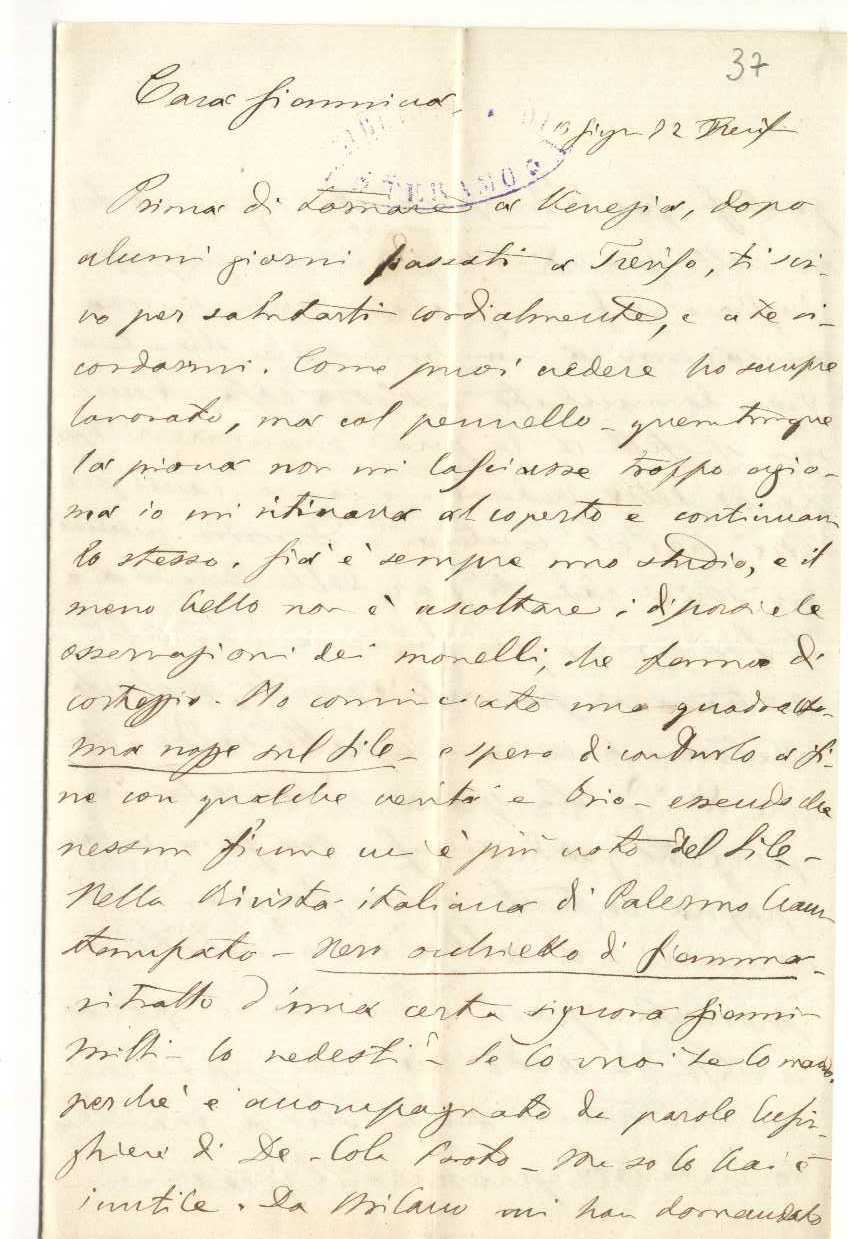 37
Cara Giannina
Giugn 92 Trevis
Prima di tornare a Venezia, dopo
alcuni giorni passati a Treviso, ti scri-
vo per salutarti cordialmente, e a te ri-
cordarmi. Come puoi credere ho sempre
lavorato, ma col pennello - quantunque
la piova non mi lasciasse troppo agio -
ma io mi ritirava al coperto e continuava
lo stesso. Già è sempre uno studio, e il
meno bello non è ascoltare i discorsi e le
osservazioni dei monelli, che fanno di
corteggio. Ho cominciato un quadretto -
sul Sile - e spero di condurlo a fi-
ne con qualche verità e brio - essendo che
nessun fiume mi è più noto del Sile -
Nella Rivista italiana di Palermo han
stampato - Nero occhietto di fiamma -
ritratto d'una certa signora Gianni-
Milli - lo vedesti? - Se lo vuoi te lo mando.
perchè è accompagnato da parole lusin-
ghiere di De - Cola Proto - Ma se lo hai è
inutile. Da Milano mi han domandato